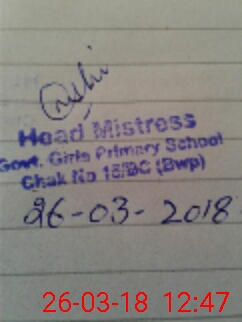 Head Mistress
Govt. Girls Primary School
Chak No 18/BC (Bwp)
26-03-2018
26-03-18 12:47